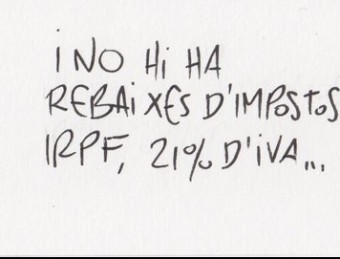 I NO HI HA
REBAIXES D'IMPOSTOS
IRPF, 21% D'IVA...